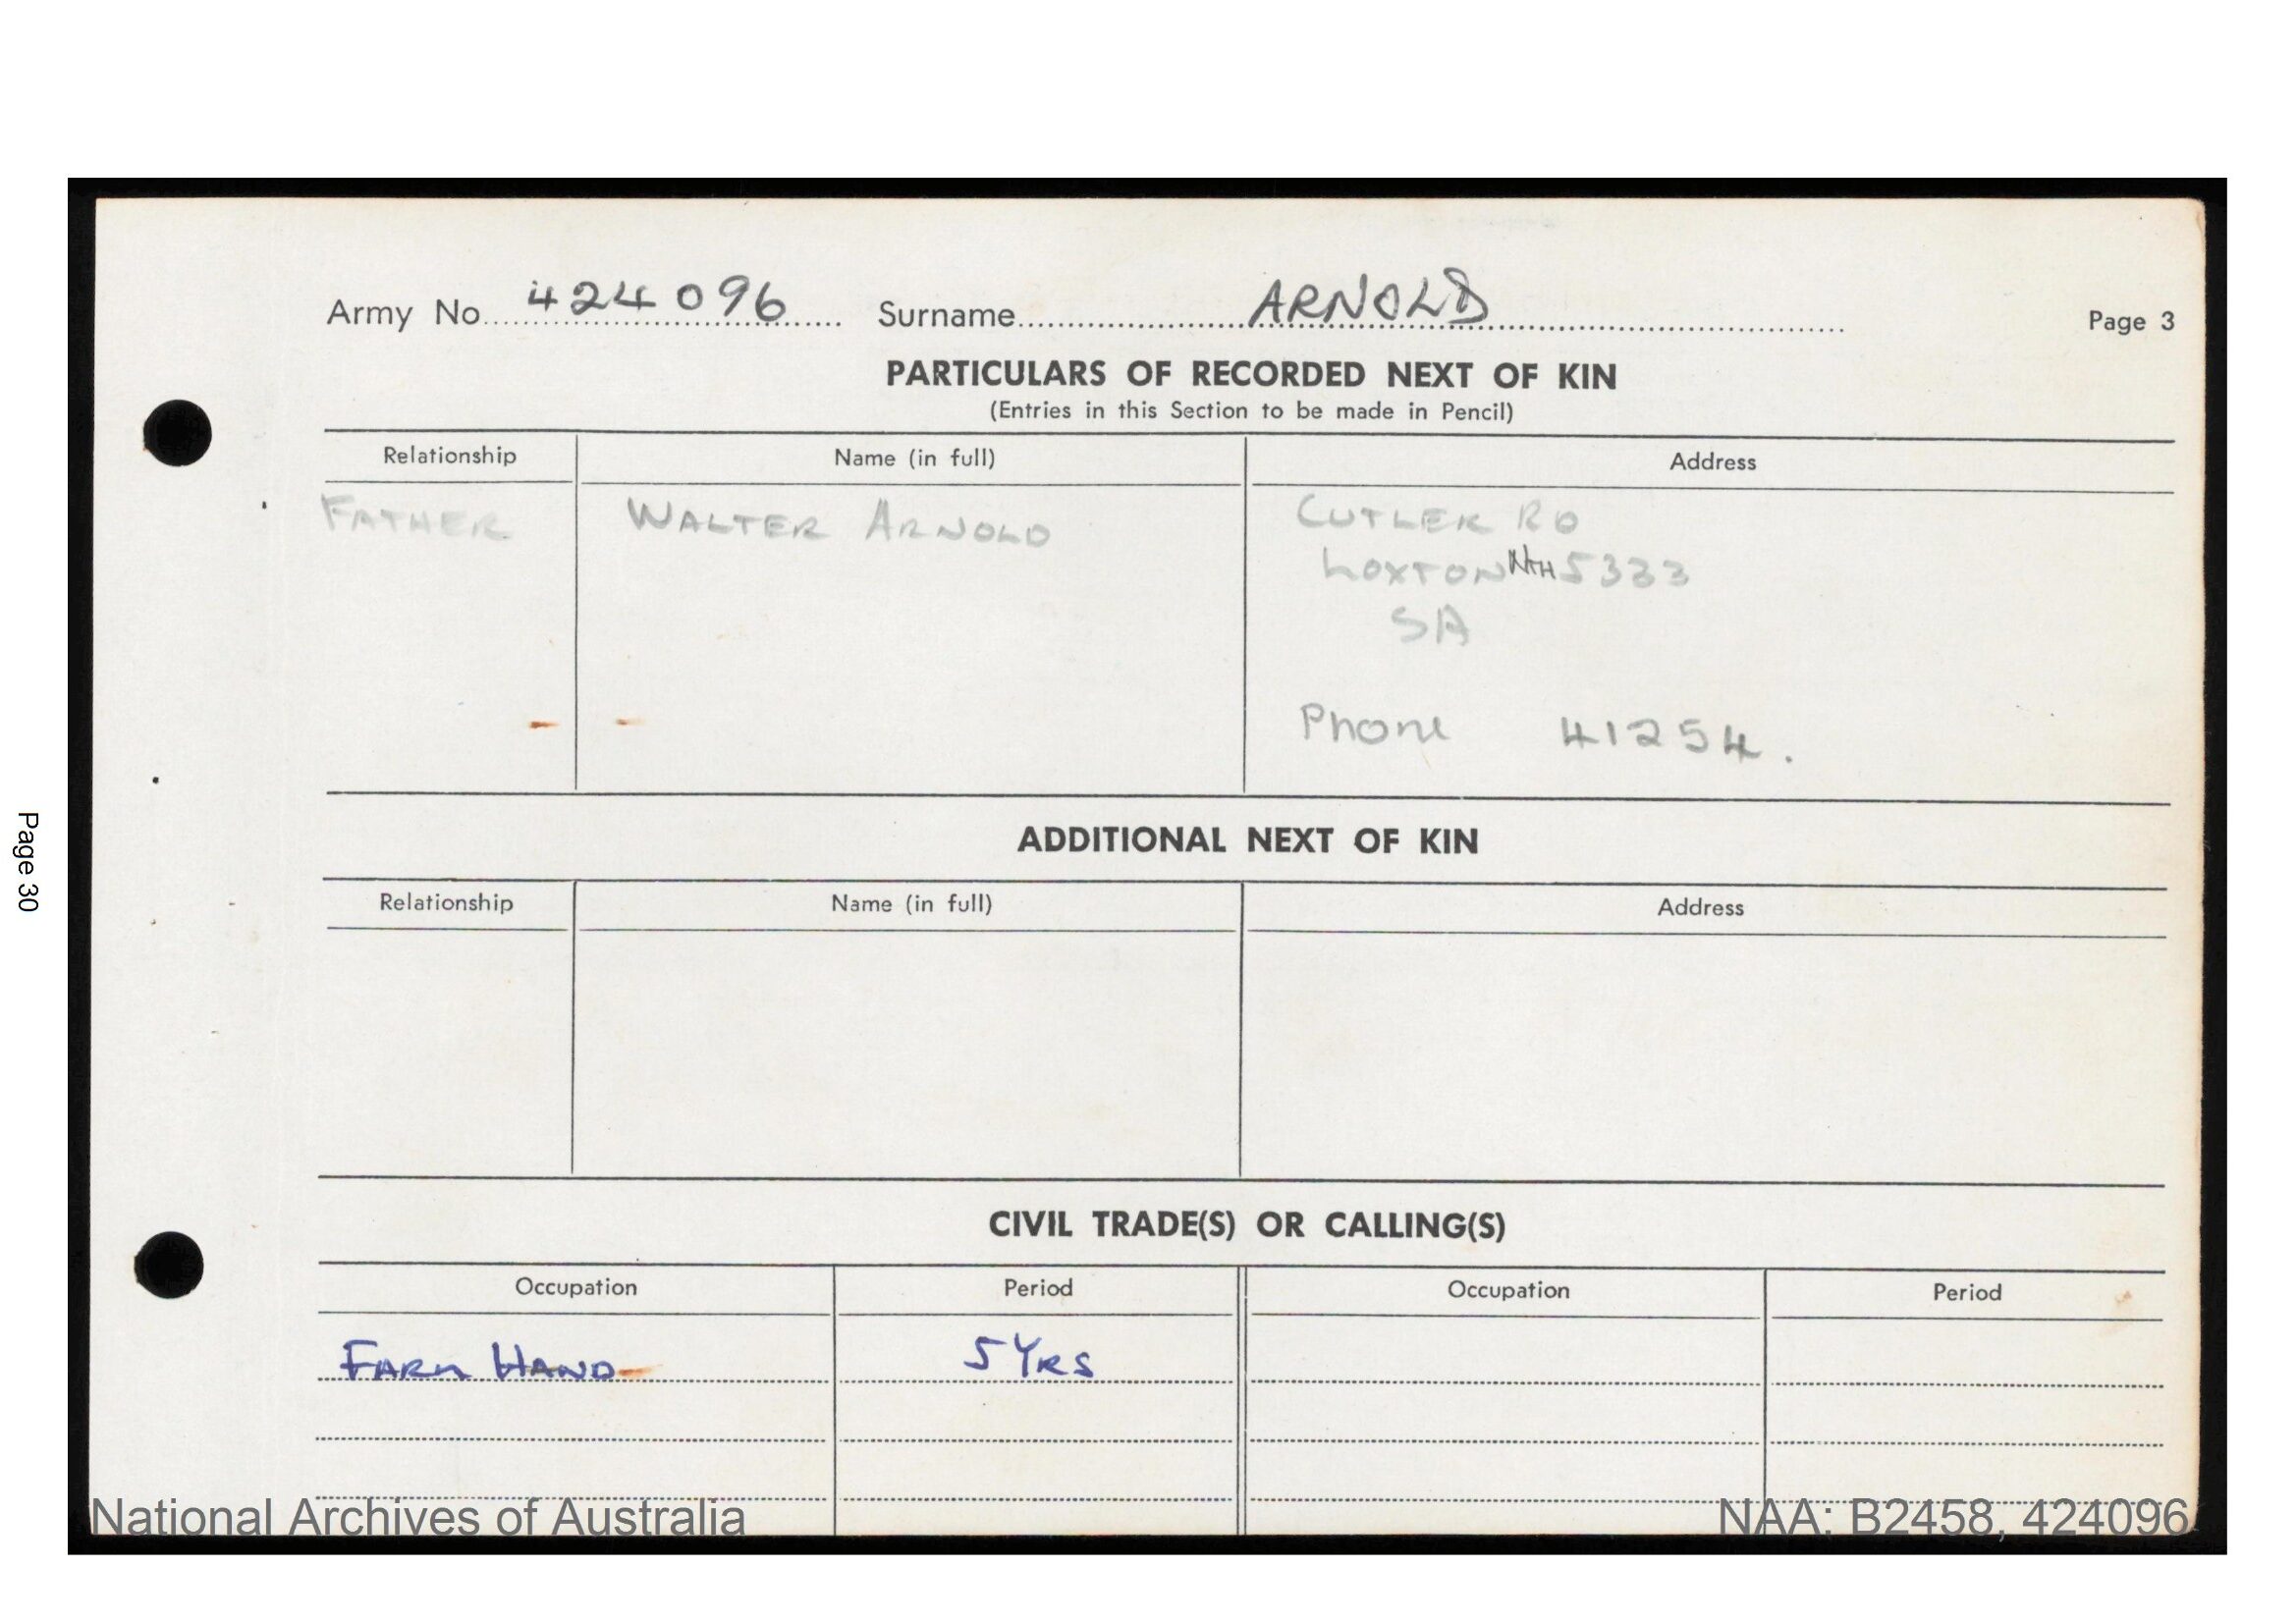 Army No. 424096 Surname ARNOLD Page 3
PARTICULARS OF RECORDED NEXT OF KIN
(Entries in this Section to be made in Pencil)
Relationship Name (in full) Address
FATHER WALTER ARNOLD CUTLER RD
LOXTON NTH 5333
SA
Phone 41254.
ADDITIONAL NEXT OF KIN
Relationship Name (in full) Address
CIVIL TRADE(S) OR CALLING(S)
Occupation Period Occupation Period
FARM HAND 5 YRS
National Archives of Australia NAA: B2458, 424096
Page 30